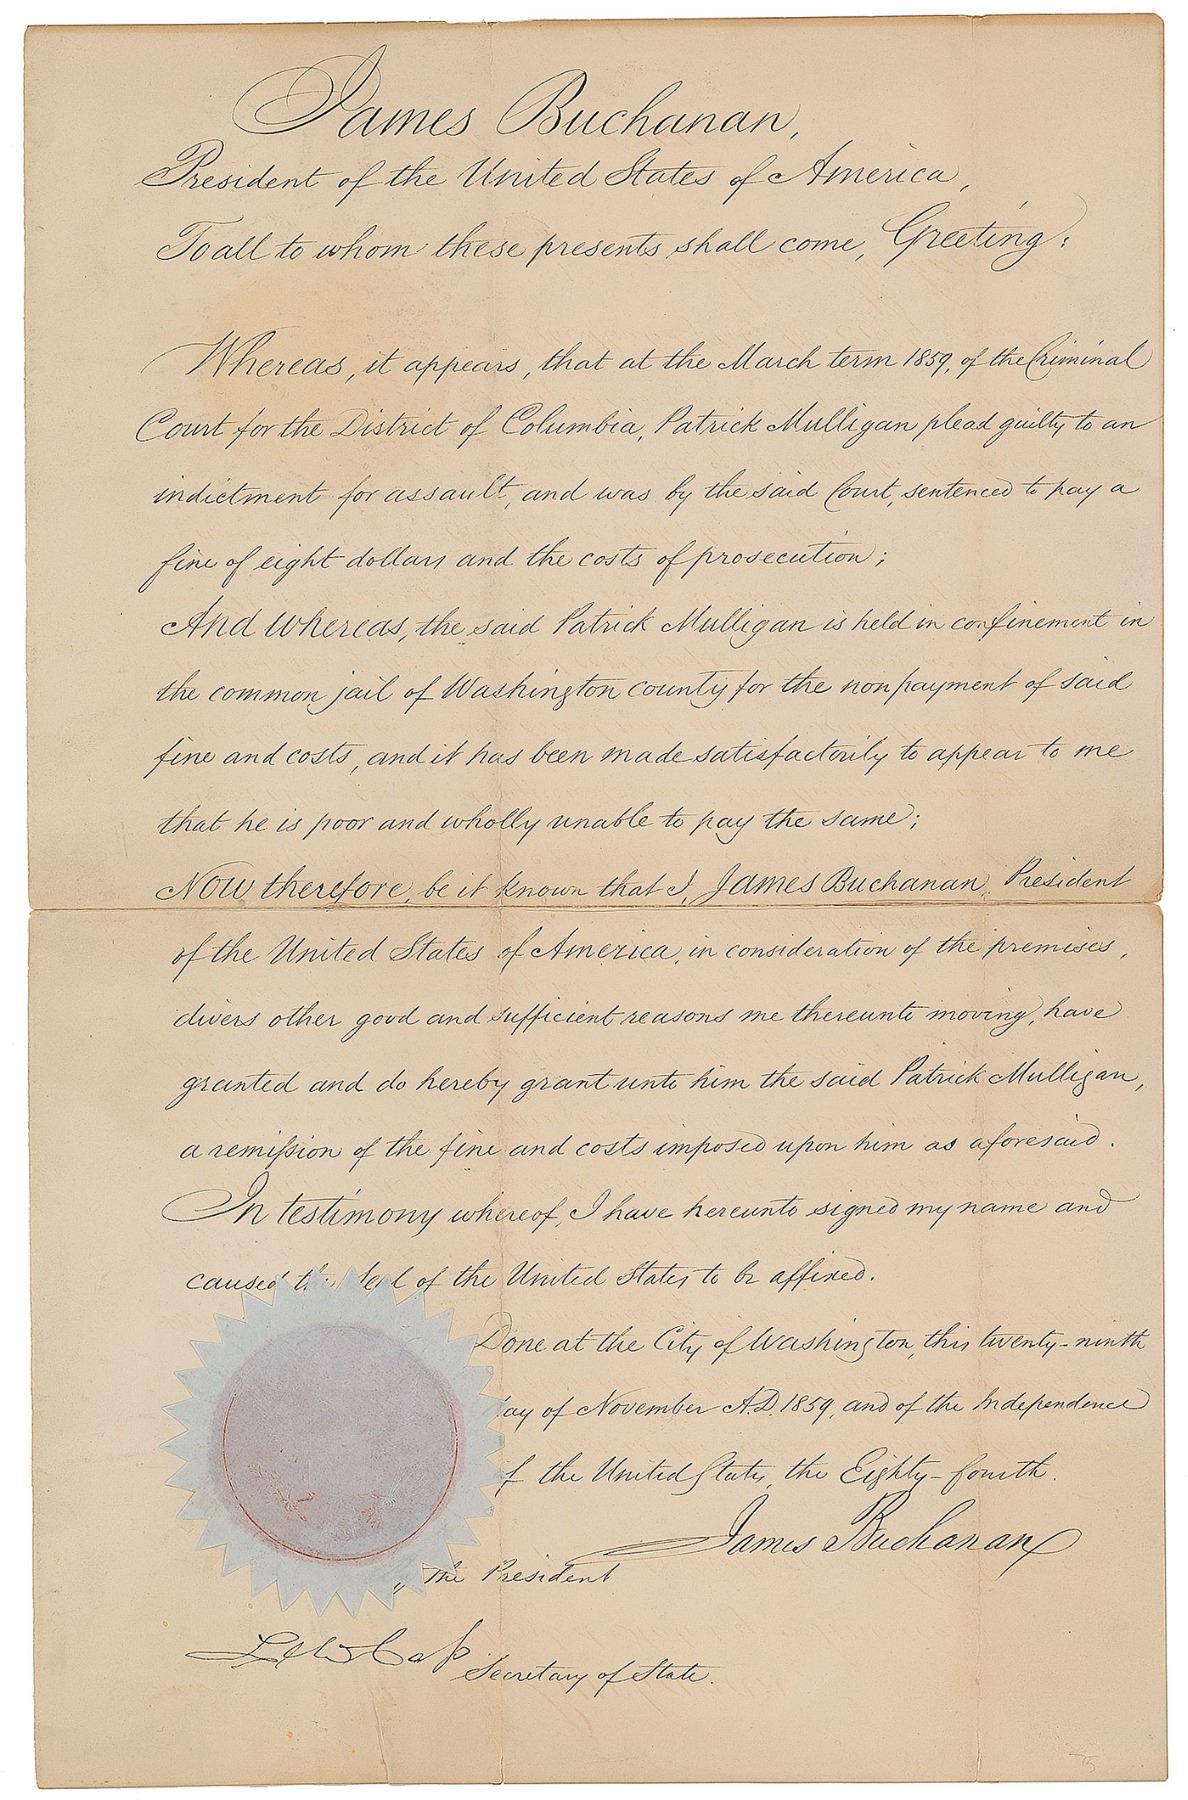 James Buchanan,
President of the United States of America,
To all to whom these presents shall come, Greeting:
Whereas, it appears, that at the March term 1859, of the Criminal
Court for the District of Columbia, Patrick Mulligan plead guilty to an
indictment for assault, and was by the said Court, sentenced to pay a
fine of eight dollars and the costs of prosecution;
And whereas, the said Patrick Mulligan is held in confinement in
the common jail of Washington county for the nonpayment of said
fine and costs, and it has been made satisfactorily to appear to me
that he is poor and wholly unable to pay the same;
Now therefore, be it known that I, James Buchanan, President
of the United States of America, in consideration of the premises,
divers other good and sufficient reasons me thereunto moving, have
granted and do hereby grant unto him the said Patrick Mulligan,
a remission of the fine and costs imposed upon him as aforesaid.
In testimony whereof, I have hereunto signed my name and
caused the Seal of the United States to be affixed.
Done at the City of Washington, this twenty-ninth
day of November A.D. 1859, and of the Independence
of the United States, the Eighty-fourth.
James Buchanan
By the President
Lew Cass
Secretary of State.